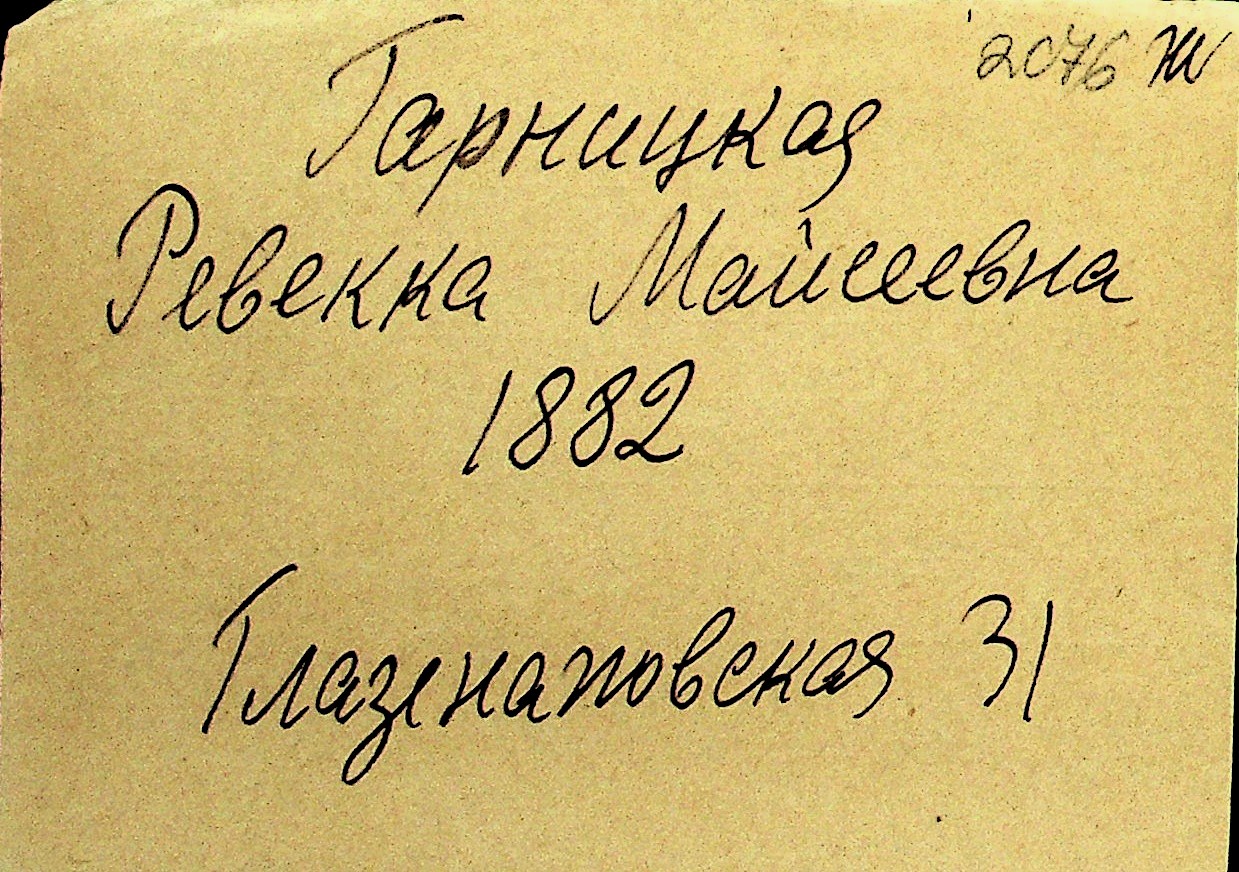 2076 Ж
Гарницкая
Ревекка Майсеевна
1882
Глазенаповская 31